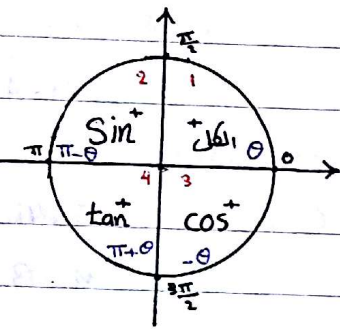 π/2
2 1
Sin⁺ الكل⁺
π π-θ θ 0
4 3
tan⁺ cos⁺
π+θ -θ
3π/2